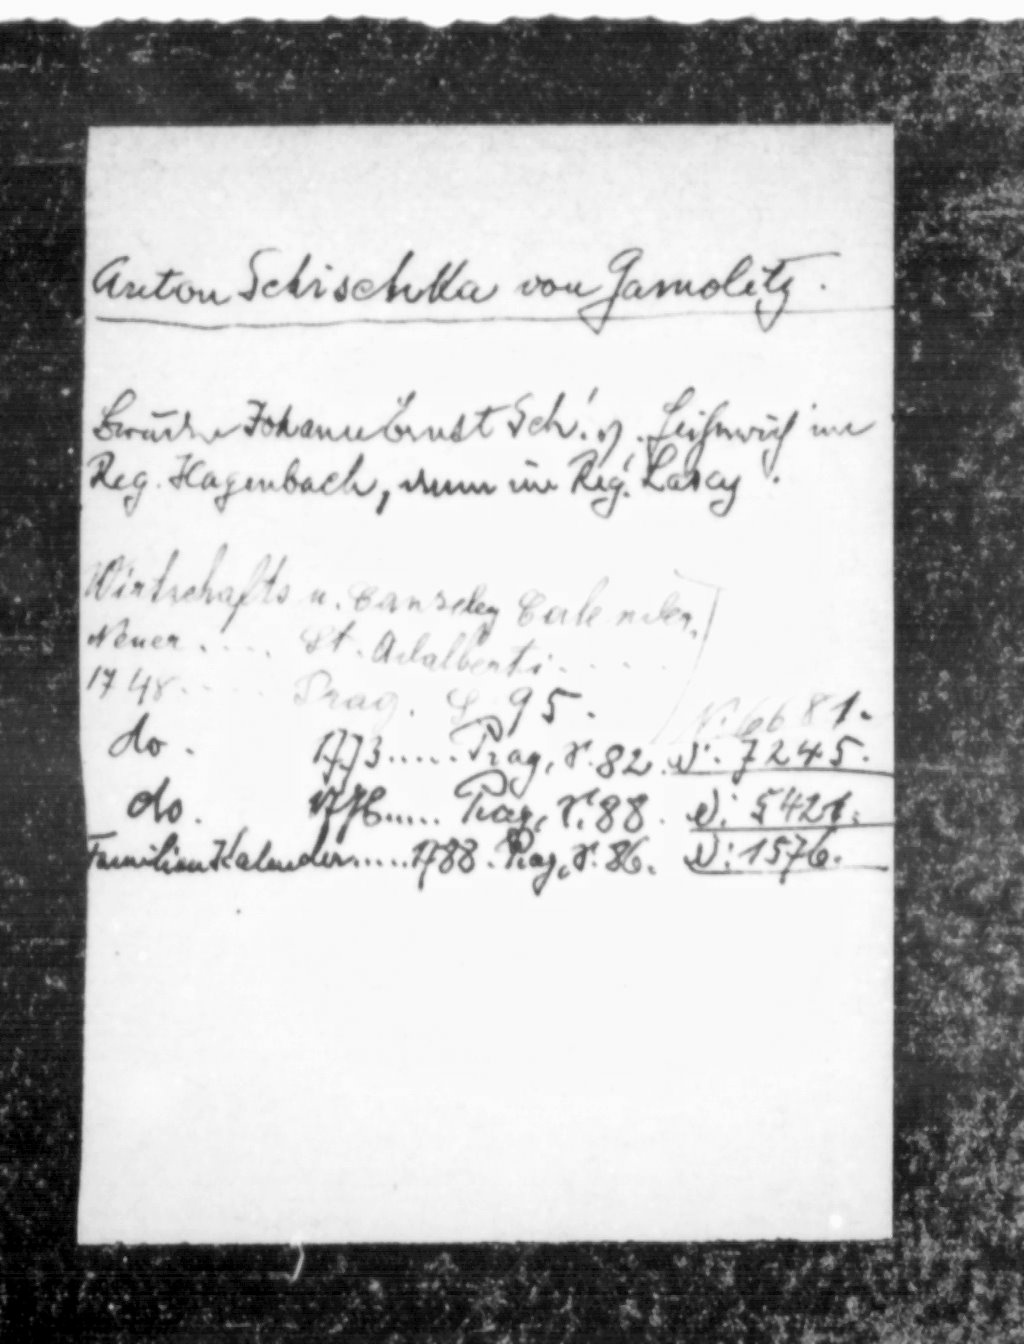 Anton Schischka von Gamolitz.
Bruder Johann Ernst Sch. v. im
Reg. Hagenbach, dann im Reg. Lascy.
Wirtschafts u. Canzley Calender,
Neuer .... St. Adalberti .....
1748 ..... Prag. S 95. N: 6681.
do. 1773 ..... Prag, S. 82. N: 7245.
do. 1776 ..... Prag, S. 88. N: 5421.
Familien Kalender ..... 1788. Prag, S. 86. N: 1576.